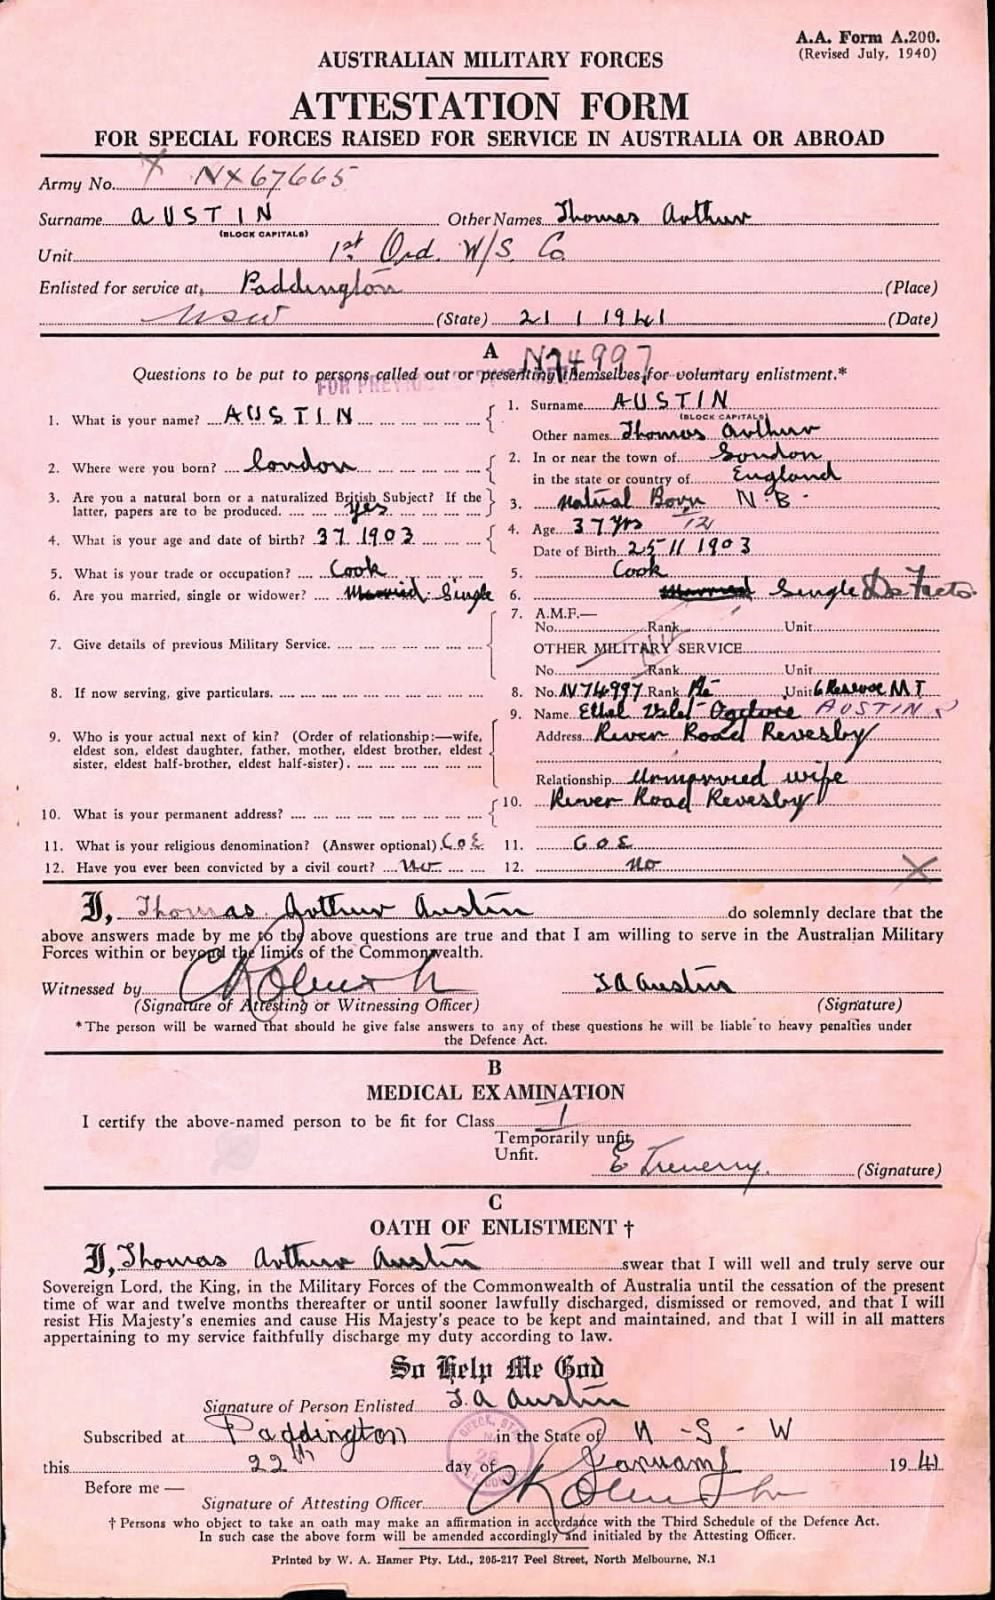 A.A. Form A.200.
(Revised July, 1940)
AUSTRALIAN MILITARY FORCES
ATTESTATION FORM
FOR SPECIAL FORCES RAISED FOR SERVICE IN AUSTRALIA OR ABROAD
Army No. X NX67665
Surname AUSTIN Other Names Thomas Arthur
(BLOCK CAPITALS)
Unit 1st Ord. W/S. Co.
Enlisted for service at Paddington (Place)
NSW (State) 21 1 1941 (Date)
A N74997
Questions to be put to persons called out or presenting themselves for voluntary enlistment.*
1. What is your name? AUSTIN 1. Surname AUSTIN
(BLOCK CAPITALS)
Other names Thomas Arthur
2. Where were you born? London 2. In or near the town of London
in the state or country of England
3. Are you a natural born or a naturalized British Subject? If the latter, papers are to be produced. Yes 3. Natural Born N.B.
4. What is your age and date of birth? 37 1903 4. Age 37 yrs /12
Date of Birth 25 11 1903
5. What is your trade or occupation? Cook 5. Cook
6. Are you married, single or widower? Married Single 6. Married Single De Facto
7. Give details of previous Military Service. 7. A.M.F.—
No. Rank Unit
OTHER MILITARY SERVICE
No. Rank Unit
8. If now serving, give particulars. 8. No. NV74997 Rank Pte Unit 6 Reserve M T
9. Who is your actual next of kin? (Order of relationship:—wife, eldest son, eldest daughter, father, mother, eldest brother, eldest sister, eldest half-brother, eldest half-sister). 9. Name Ethel AUSTIN
Address River Road Revesby
Relationship Unmarried wife
10. What is your permanent address? 10. River Road Revesby
11. What is your religious denomination? (Answer optional) C o E 11. C o E
12. Have you ever been convicted by a civil court? No 12. No X
I, Thomas Arthur Austin do solemnly declare that the
above answers made by me to the above questions are true and that I am willing to serve in the Australian Military
Forces within or beyond the limits of the Commonwealth.
Witnessed by T A Austin
(Signature of Attesting or Witnessing Officer) (Signature)
*The person will be warned that should he give false answers to any of these questions he will be liable to heavy penalties under
the Defence Act.
B
MEDICAL EXAMINATION
I certify the above-named person to be fit for Class I
Temporarily unfit.
Unfit.
E Treverry. (Signature)
C
OATH OF ENLISTMENT †
I, Thomas Arthur Austin swear that I will well and truly serve our
Sovereign Lord, the King, in the Military Forces of the Commonwealth of Australia until the cessation of the present
time of war and twelve months thereafter or until sooner lawfully discharged, dismissed or removed, and that I will
resist His Majesty's enemies and cause His Majesty's peace to be kept and maintained, and that I will in all matters
appertaining to my service faithfully discharge my duty according to law.
So Help Me God
Signature of Person Enlisted T. A Austin
Subscribed at Paddington in the State of N - S - W
this 22th day of January 1941
Before me —
Signature of Attesting Officer
† Persons who object to take an oath may make an affirmation in accordance with the Third Schedule of the Defence Act.
In such case the above form will be amended accordingly and initialed by the Attesting Officer.
Printed by W. A. Hamer Pty. Ltd., 205-217 Peel Street, North Melbourne, N.1